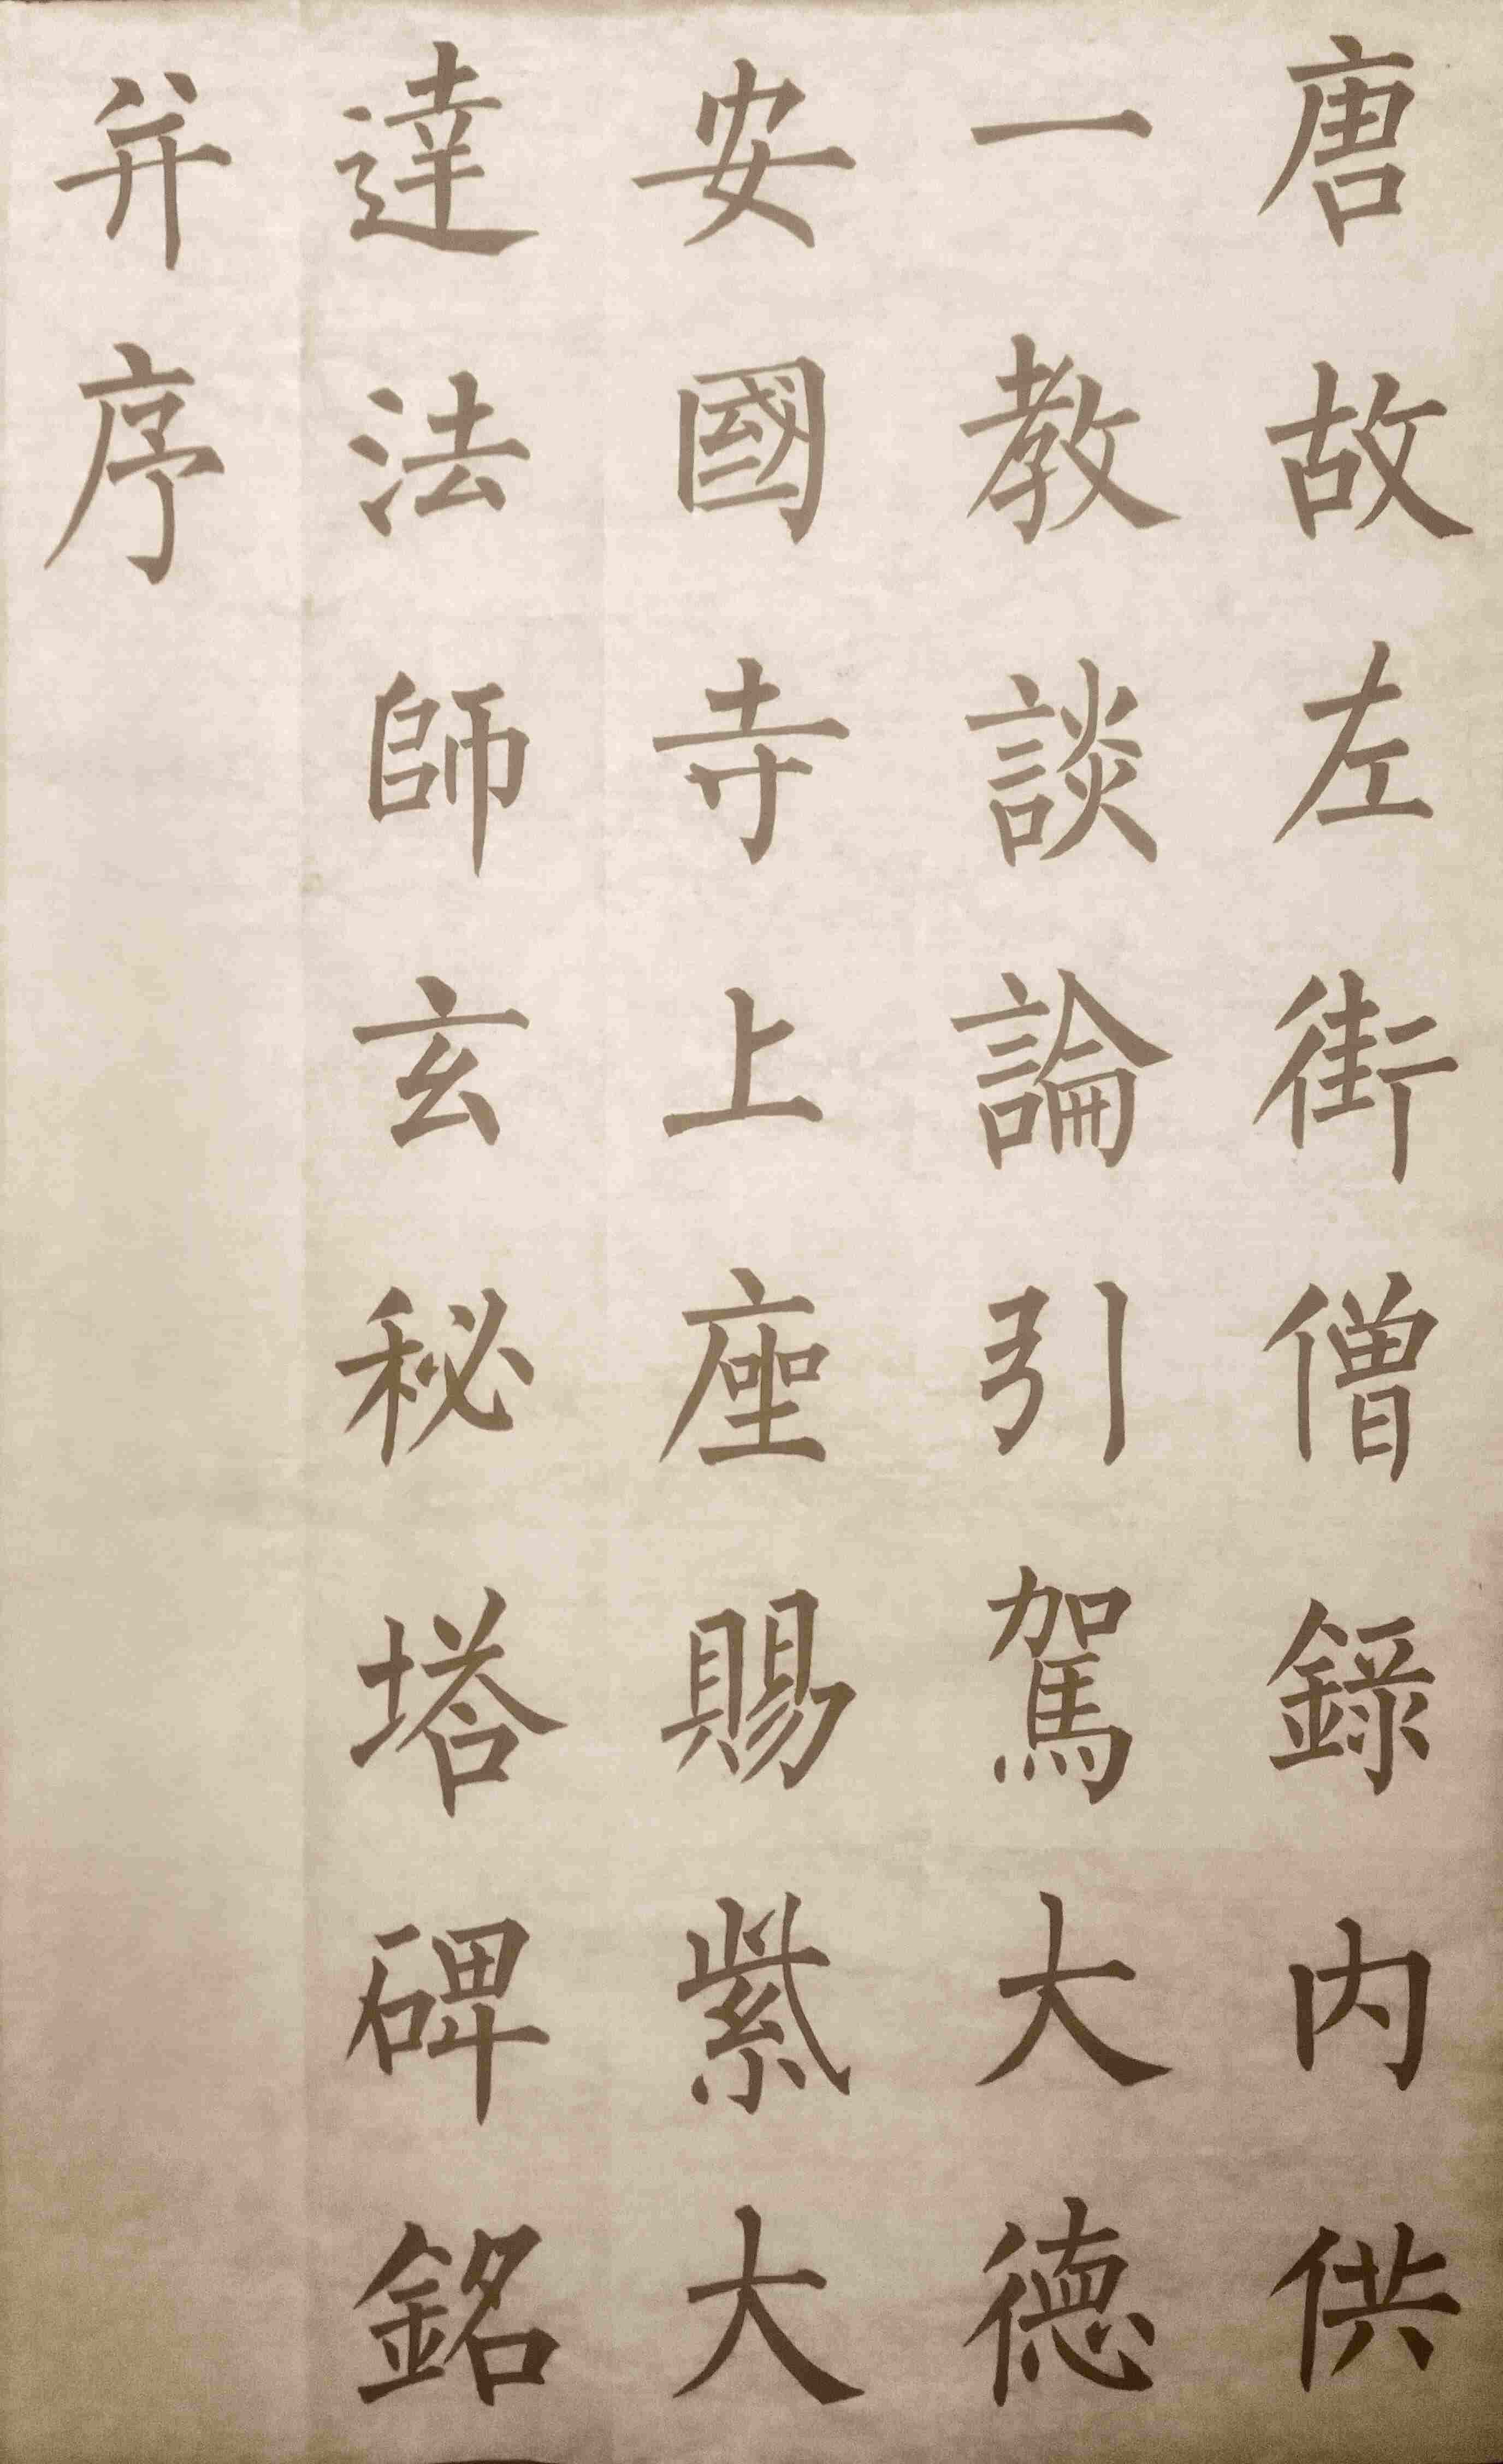 唐故左街僧錄内供
一教談論引駕大德
安國寺上座賜紫大
達法師玄秘塔碑銘
并序